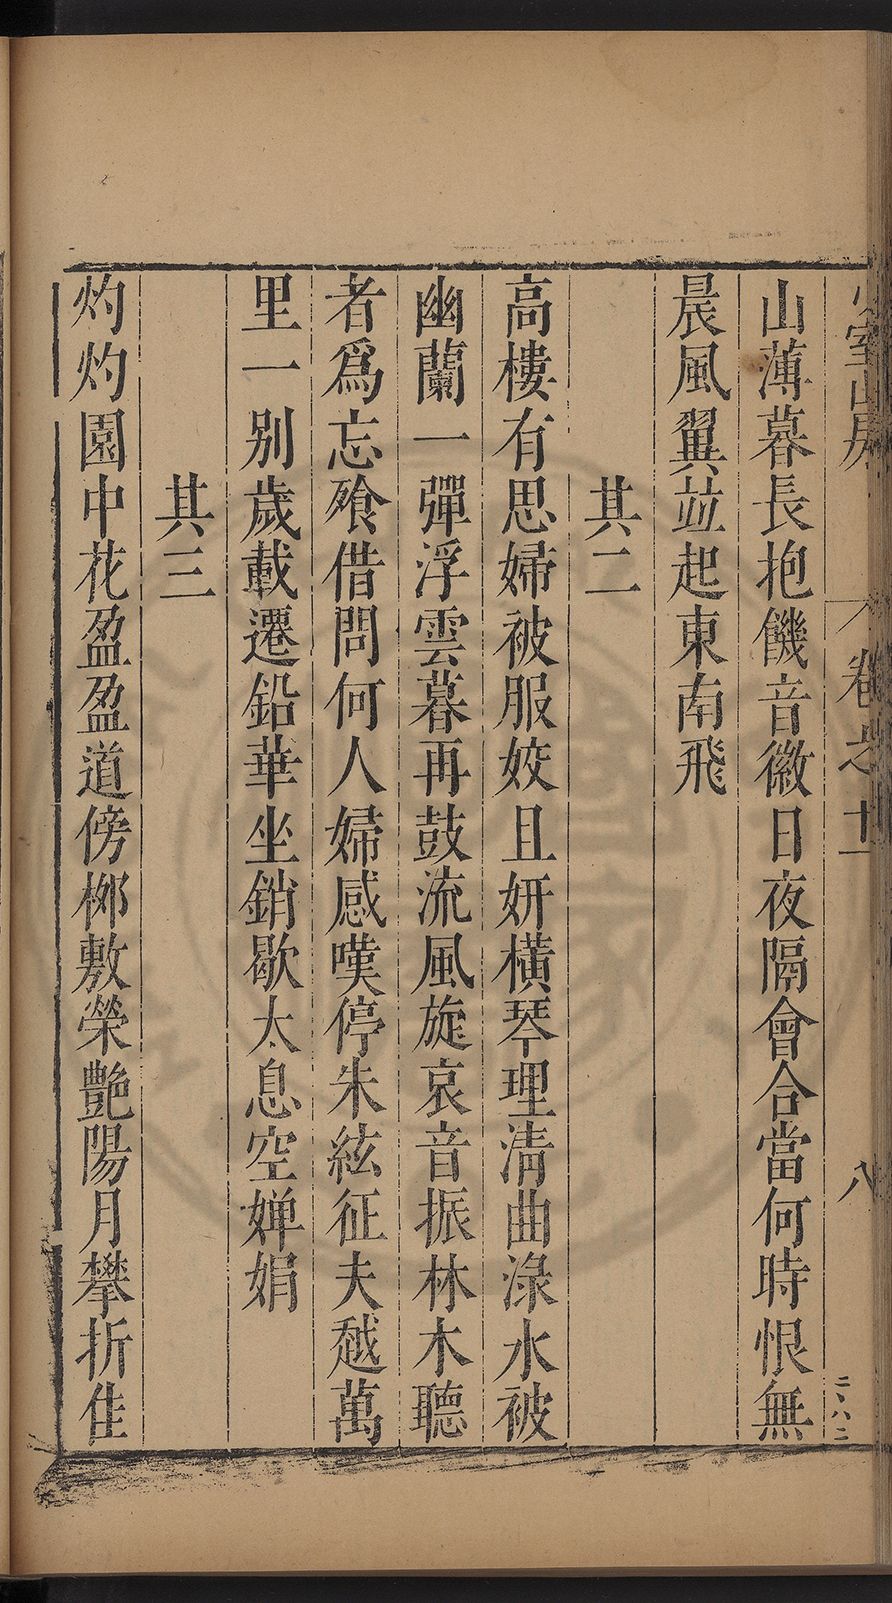 少室山房 卷之十一 八 二、八二
山薄暮長抱饑音徽日夜隔會合當何時恨無
晨風翼竝起東南飛
其二
高樓有思婦被服姣且妍橫琴理清曲淥水被
幽蘭一彈浮雲暮再鼓流風旋哀音振林木聽
者爲忘飱借問何人婦感嘆停朱絃征夫越萬
里一别歲載遷鉛華坐銷歇太息空嬋娟
其三
灼灼園中花盈盈道傍桺敷榮艷陽月攀折佳